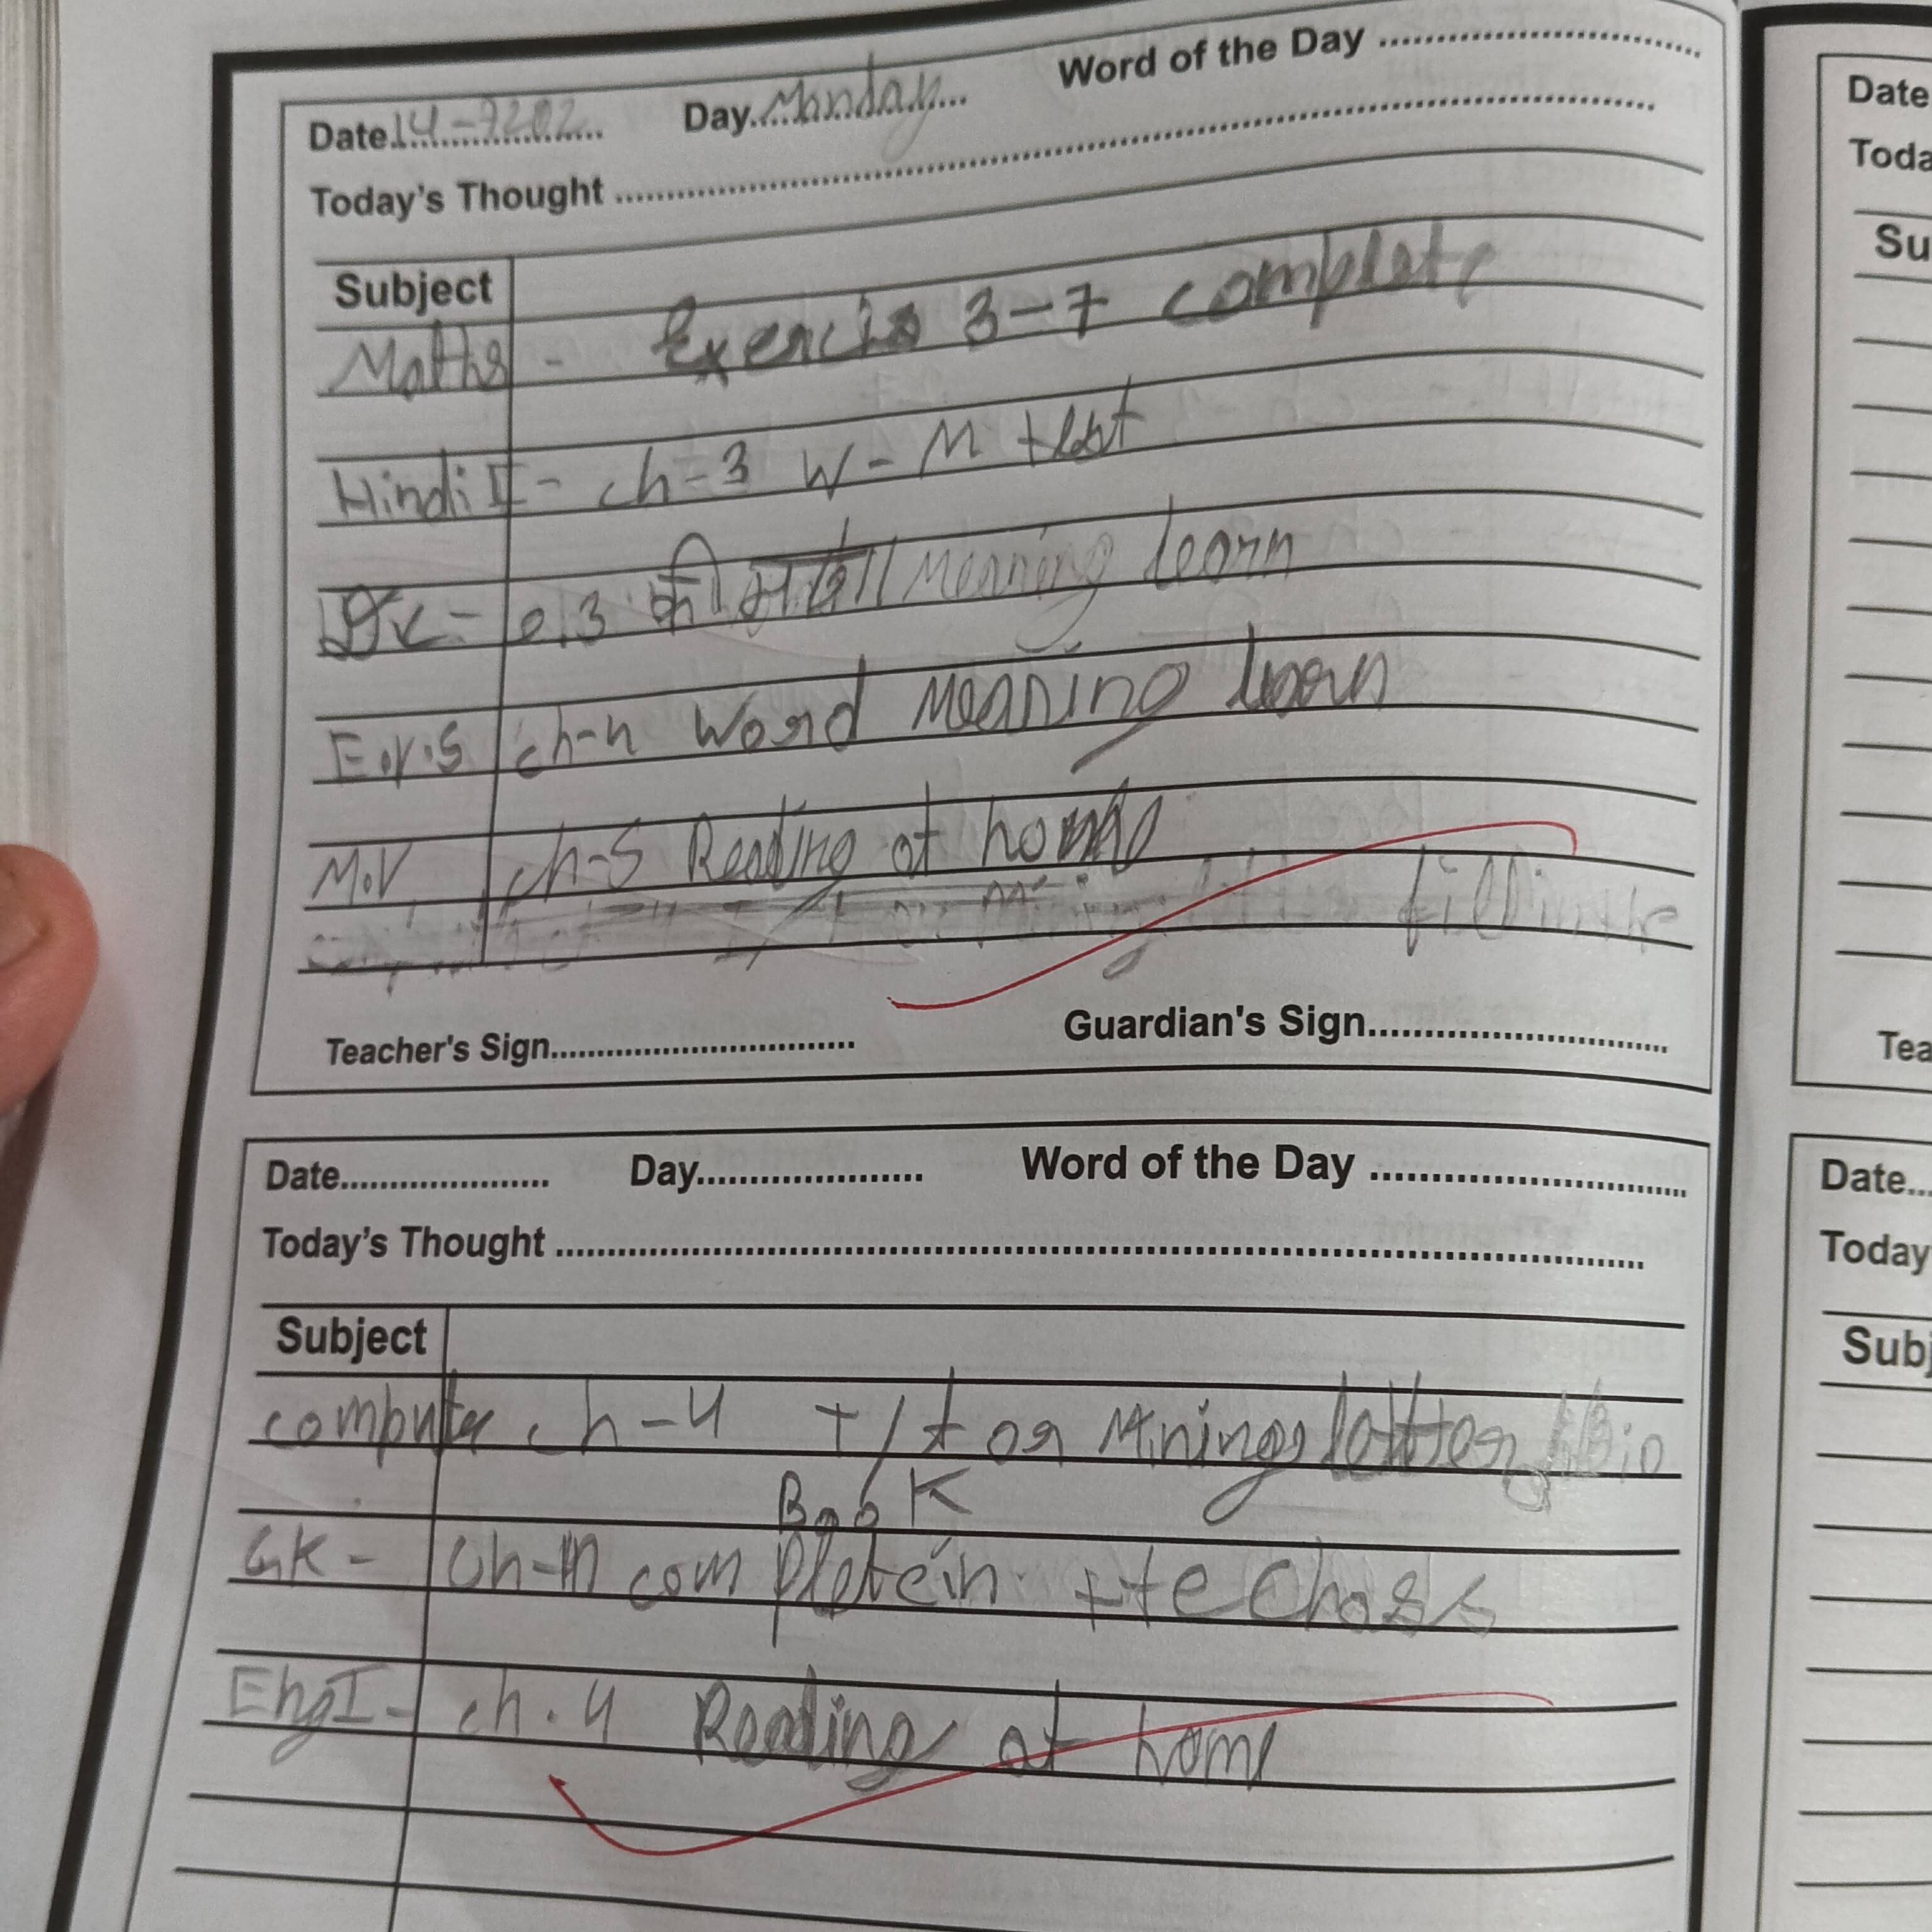 Date 14-7202 Day Monday Word of the Day
Today's Thought
Subject
Maths - Exercis 3-7 complete
Hindi II - ch-3 W-M test
e.3 की meaning learn
E.V.S ch-4 word meaning learn
M.V ch-5 Reading at home
fill in the
Teacher's Sign Guardian's Sign
Date Day Word of the Day
Today's Thought
Subject
computer ch-4 t/f or Mining latter
Book
GK - complete in the Class
Eng I - ch.4 Reading at home
Date
Toda
Su
Tea
Date
Today
Subj